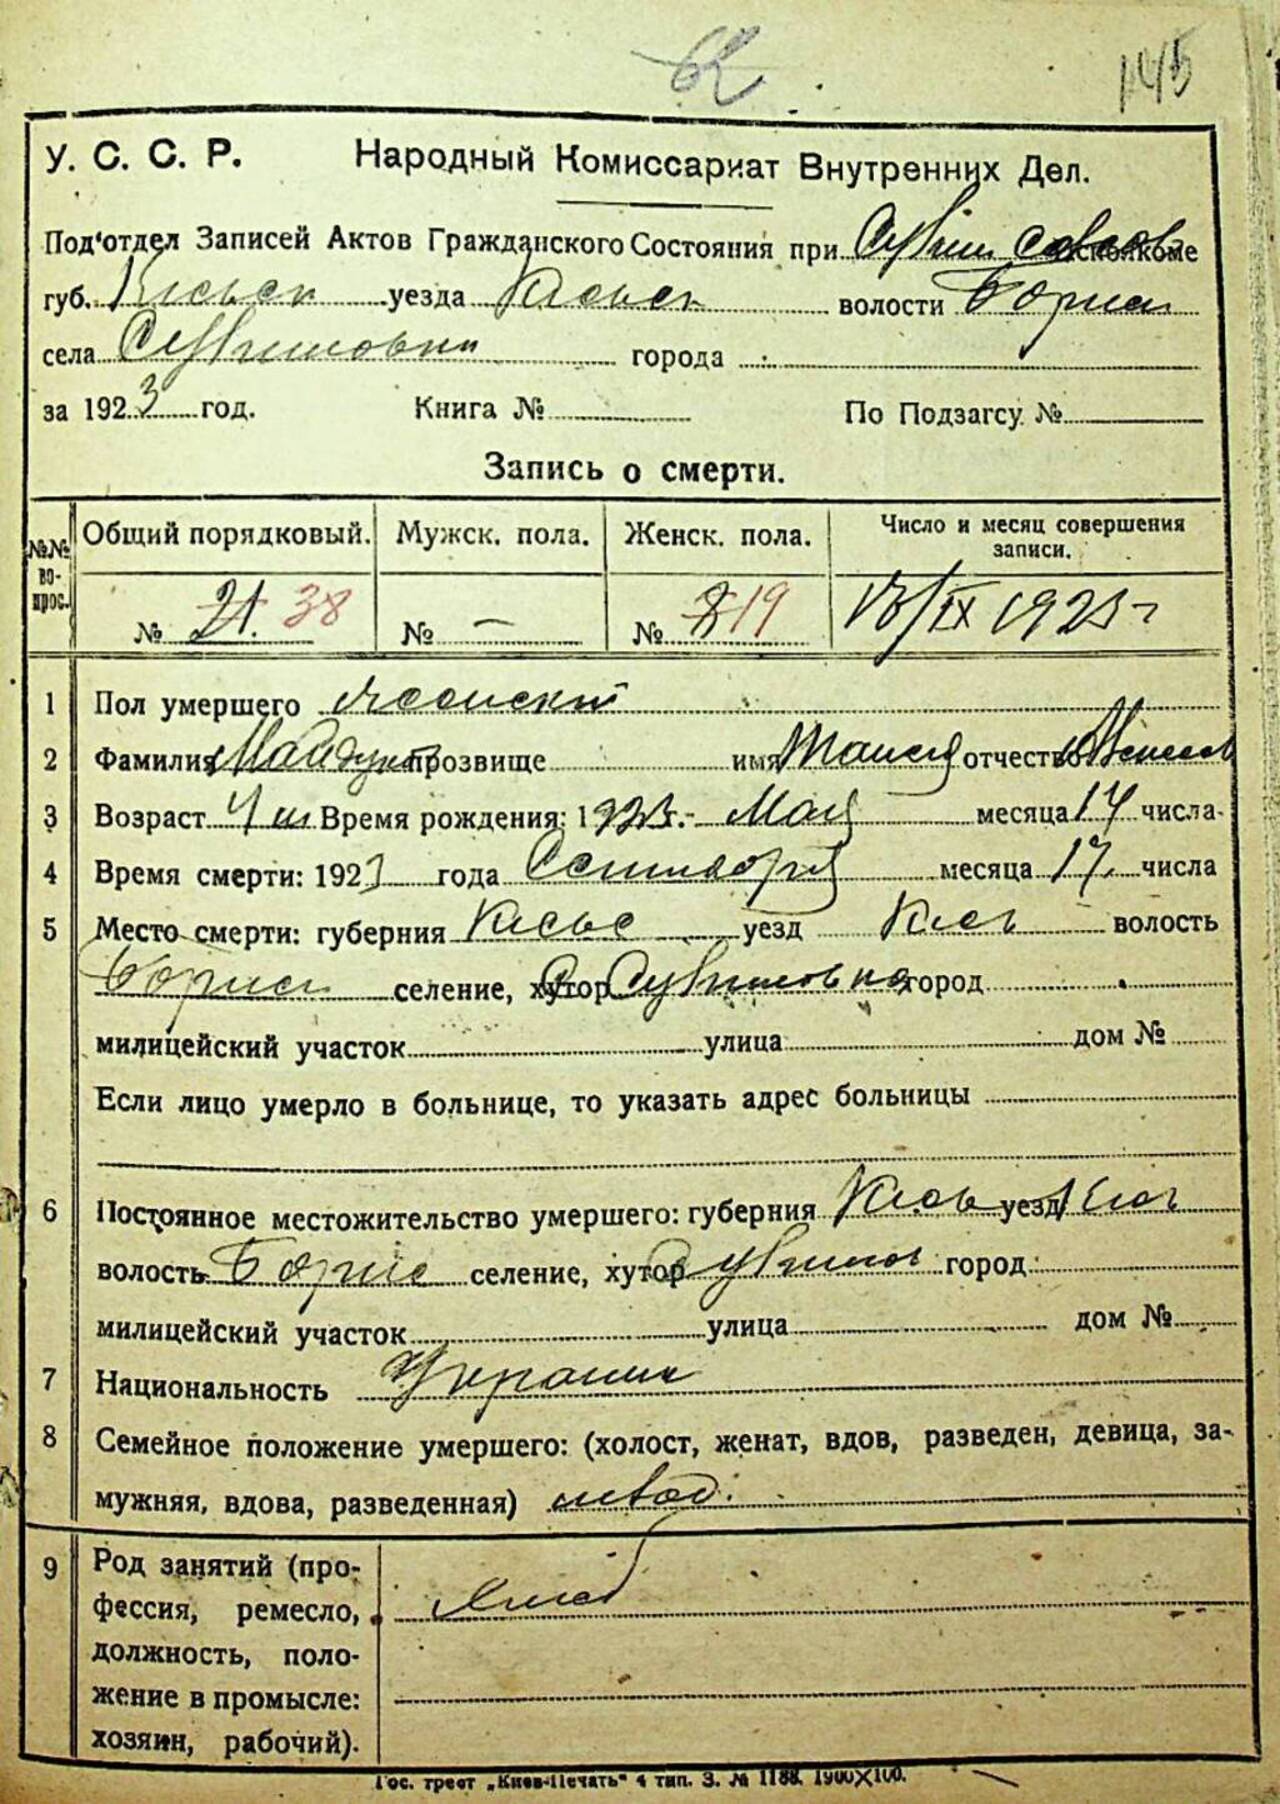 145
У. С. С. Р. Народный Комиссариат Внутренних Дел.
Под'отдел Записей Актов Гражданского Состояния при
губ. Киевск уезда Киевск волости Борисп
села города
за 1923 год. Книга № По Подзагсу №
Запись о смерти.
№№ вопрос. Общий порядковый. Мужск. пола. Женск. пола. Число и месяц совершения записи.
№ 21. 38 № — № 8 19 18/IX 1923 г
1 Пол умершего женский
2 Фамилия прозвище имя Таисия отчество
3 Возраст 4 м Время рождения: 1923.- Мая месяца 17 числа
4 Время смерти: 1923 года Сентября месяца 17. числа
5 Место смерти: губерния Киевс уезд Киев волость
Борисп селение, хутор город
милицейский участок улица дом №
Если лицо умерло в больнице, то указать адрес больницы
6 Постоянное местожительство умершего: губерния Киев уезд Киев
волость Борис селение, хутор город
милицейский участок улица дом №
7 Национальность Украинк
8 Семейное положение умершего: (холост, женат, вдов, разведен, девица, за-
мужняя, вдова, разведенная)
9 Род занятий (про-
фессия, ремесло,
должность, поло-
жение в промысле:
хозяин, рабочий).
Гос. трест „Киев-Печать" 4 тип. З. № 1188. 1900×100.